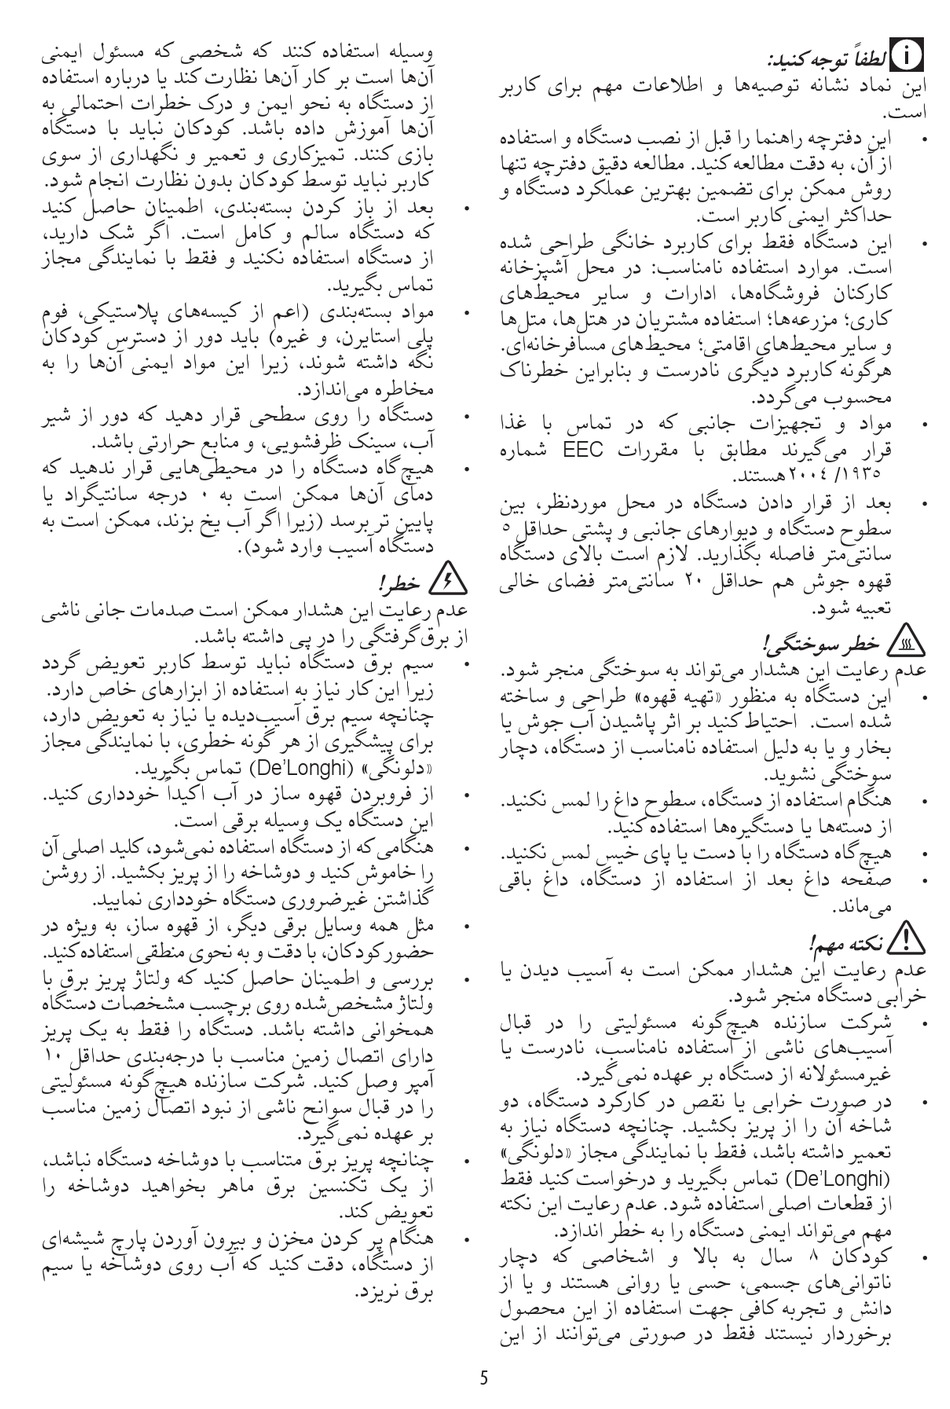 لطفاً توجه کنید:
این نماد نشانه توصیه‌ها و اطلاعات مهم برای کاربر
است.
• این دفترچه راهنما را قبل از نصب دستگاه و استفاده
از آن، به دقت مطالعه کنید. مطالعه دقیق دفترچه تنها
روش ممکن برای تضمین بهترین عملکرد دستگاه و
حداکثر ایمنی کاربر است.
• این دستگاه فقط برای کاربرد خانگی طراحی شده
است. موارد استفاده نامناسب: در محل آشپزخانه
کارکنان فروشگاه‌ها، ادارات و سایر محیط‌های
کاری؛ مزرعه‌ها؛ استفاده مشتریان در هتل‌ها، متل‌ها
و سایر محیط‌های اقامتی؛ محیط‌های مسافرخانه‌ای.
هرگونه کاربرد دیگری نادرست و بنابراین خطرناک
محسوب می‌گردد.
• مواد و تجهیزات جانبی که در تماس با غذا
قرار می‌گیرند مطابق با مقررات EEC شماره
۱۹۳۵/ ۲۰۰۴هستند.
• بعد از قرار دادن دستگاه در محل موردنظر، بین
سطوح دستگاه و دیوارهای جانبی و پشتی حداقل ۵
سانتی‌متر فاصله بگذارید. لازم است بالای دستگاه
قهوه جوش هم حداقل ۲۰ سانتی‌متر فضای خالی
تعبیه شود.
خطر سوختگی!
عدم رعایت این هشدار می‌تواند به سوختگی منجر شود.
• این دستگاه به منظور «تهیه قهوه» طراحی و ساخته
شده است. احتیاط کنید بر اثر پاشیدن آب جوش یا
بخار و یا به دلیل استفاده نامناسب از دستگاه، دچار
سوختگی نشوید.
• هنگام استفاده از دستگاه، سطوح داغ را لمس نکنید.
از دسته‌ها یا دستگیره‌ها استفاده کنید.
• هیچ‌گاه دستگاه را با دست یا پای خیس لمس نکنید.
• صفحه داغ بعد از استفاده از دستگاه، داغ باقی
می‌ماند.
نکته مهم!
عدم رعایت این هشدار ممکن است به آسیب دیدن یا
خرابی دستگاه منجر شود.
• شرکت سازنده هیچ‌گونه مسئولیتی را در قبال
آسیب‌های ناشی از استفاده نامناسب، نادرست یا
غیرمسئولانه از دستگاه بر عهده نمی‌گیرد.
• در صورت خرابی یا نقص در کارکرد دستگاه، دو
شاخه آن را از پریز بکشید. چنانچه دستگاه نیاز به
تعمیر داشته باشد، فقط با نمایندگی مجاز «دلونگی»
(De'Longhi) تماس بگیرید و درخواست کنید فقط
از قطعات اصلی استفاده شود. عدم رعایت این نکته
مهم می‌تواند ایمنی دستگاه را به خطر اندازد.
• کودکان ۸ سال به بالا و اشخاصی که دچار
ناتوانی‌های جسمی، حسی یا روانی هستند و یا از
دانش و تجربه کافی جهت استفاده از این محصول
برخوردار نیستند فقط در صورتی می‌توانند از این
وسیله استفاده کنند که شخصی که مسئول ایمنی
آن‌ها است بر کار آن‌ها نظارت کند یا درباره استفاده
از دستگاه به نحو ایمن و درک خطرات احتمالی به
آن‌ها آموزش داده باشد. کودکان نباید با دستگاه
بازی کنند. تمیزکاری و تعمیر و نگهداری از سوی
کاربر نباید توسط کودکان بدون نظارت انجام شود.
• بعد از باز کردن بسته‌بندی، اطمینان حاصل کنید
که دستگاه سالم و کامل است. اگر شک دارید،
از دستگاه استفاده نکنید و فقط با نمایندگی مجاز
تماس بگیرید.
• مواد بسته‌بندی (اعم از کیسه‌های پلاستیکی، فوم
پلی استایرن، و غیره) باید دور از دسترس کودکان
نگه داشته شوند، زیرا این مواد ایمنی آن‌ها را به
مخاطره می‌اندازد.
• دستگاه را روی سطحی قرار دهید که دور از شیر
آب، سینک ظرفشویی، و منابع حرارتی باشد.
• هیچ‌گاه دستگاه را در محیطی‌هایی قرار ندهید که
دمای آن‌ها ممکن است به ۰ درجه سانتیگراد یا
پایین تر برسد (زیرا اگر آب یخ بزند، ممکن است به
دستگاه آسیب وارد شود).
خطر!
عدم رعایت این هشدار ممکن است صدمات جانی ناشی
از برق‌گرفتگی را در پی داشته باشد.
• سیم برق دستگاه نباید توسط کاربر تعویض گردد
زیرا این کار نیاز به استفاده از ابزارهای خاص دارد.
چنانچه سیم برق آسیب‌دیده یا نیاز به تعویض دارد،
برای پیشگیری از هر گونه خطری، با نمایندگی مجاز
«دلونگی» (De'Longhi) تماس بگیرید.
• از فروبردن قهوه ساز در آب اکیداً خودداری کنید.
این دستگاه یک وسیله برقی است.
• هنگامی که از دستگاه استفاده نمی‌شود، کلید اصلی آن
را خاموش کنید و دوشاخه را از پریز بکشید. از روشن
گذاشتن غیرضروری دستگاه خودداری نمایید.
• مثل همه وسایل برقی دیگر، از قهوه ساز، به ویژه در
حضور کودکان، با دقت و به نحوی منطقی استفاده کنید.
• بررسی و اطمینان حاصل کنید که ولتاژ پریز برق با
ولتاژ مشخص‌شده روی برچسب مشخصات دستگاه
همخوانی داشته باشد. دستگاه را فقط به یک پریز
دارای اتصال زمین مناسب با درجه‌بندی حداقل ۱۰
آمپر وصل کنید. شرکت سازنده هیچ‌گونه مسئولیتی
را در قبال سوانح ناشی از نبود اتصال زمین مناسب
بر عهده نمی‌گیرد.
• چنانچه پریز برق متناسب با دوشاخه دستگاه نباشد،
از یک تکنسین برق ماهر بخواهید دوشاخه را
تعویض کند.
• هنگام پر کردن مخزن و بیرون آوردن پارچ شیشه‌ای
از دستگاه، دقت کنید که آب روی دوشاخه یا سیم
برق نریزد.
5